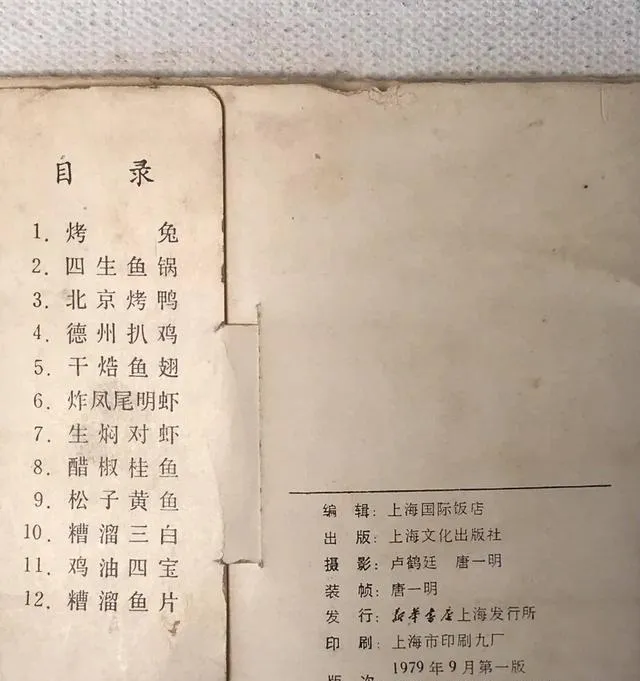 目 录
1. 烤 兔
2. 四生鱼锅
3. 北京烤鸭
4. 德州扒鸡
5. 干㸆鱼翅
6. 炸凤尾明虾
7. 生焖对虾
8. 醋椒桂鱼
9. 松子黄鱼
10. 糟溜三白
11. 鸡油四宝
12. 糟溜鱼片
编 辑: 上海国际饭店
出 版: 上海文化出版社
摄 影: 卢鹤廷 唐一明
装 帧: 唐一明
发 行: 新华书店上海发行所
印 刷: 上海市印刷九厂
版 次 1979年9月第一版